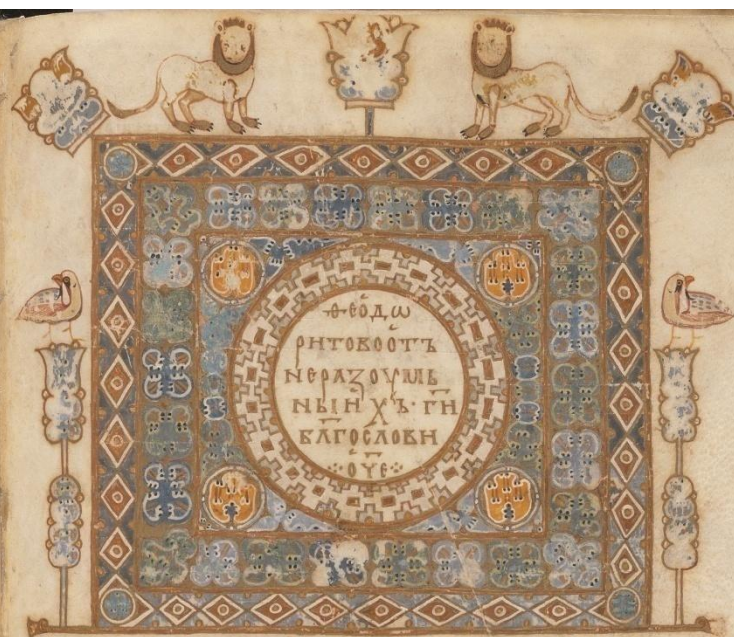 ѳеѡ́дѡ
ритовоѡтъ
неразоумь
ныихъ· г҃и
бл҃гослови
·:· ѡ҃ч҃е ·:·